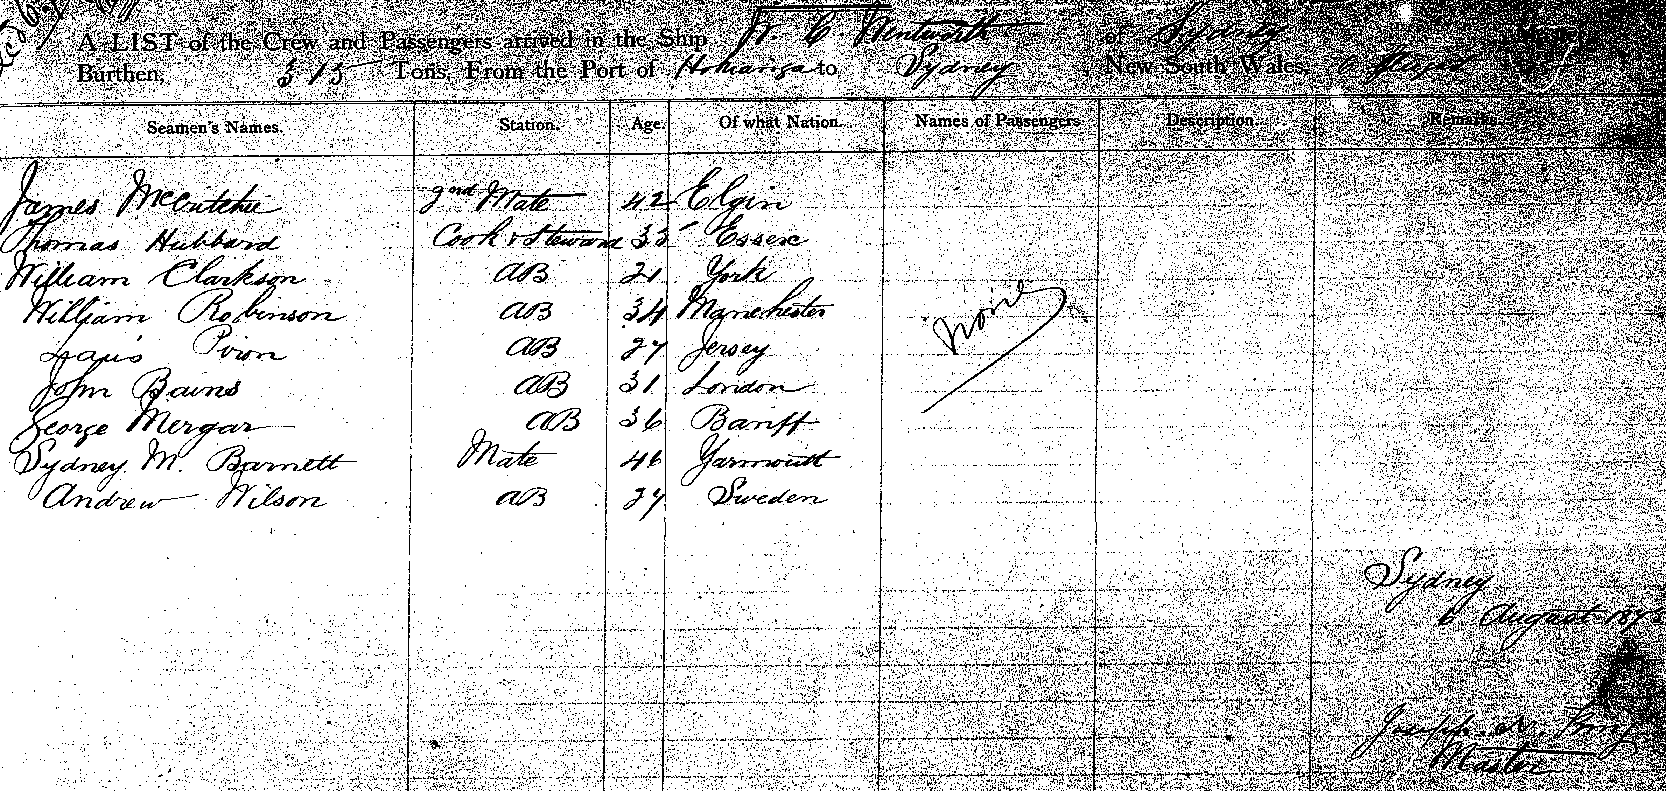 A LIST of the Crew and Passengers arrived in the Ship W. C. Wentworth of Sydney
Burthen, 315 Tons, From the Port of Hokianga to Sydney New South Wales,
Seamen's Names. Station. Age. Of what Nation. Names of Passengers. Description. Remarks.
James McCutchie 2nd Mate 42 Elgin
Thomas Hubbard Cook & Steward 33 Essex
William Clarkson AB 21 York
William Robinson AB 34 Manchester None
AB 27 Jersey
John Bains AB 31 London
George Mergar AB 36 Banff
Sydney M. Barnett Mate 46 Yarmouth
Andrew Wilson AB 27 Sweden
Sydney
6 August
Master